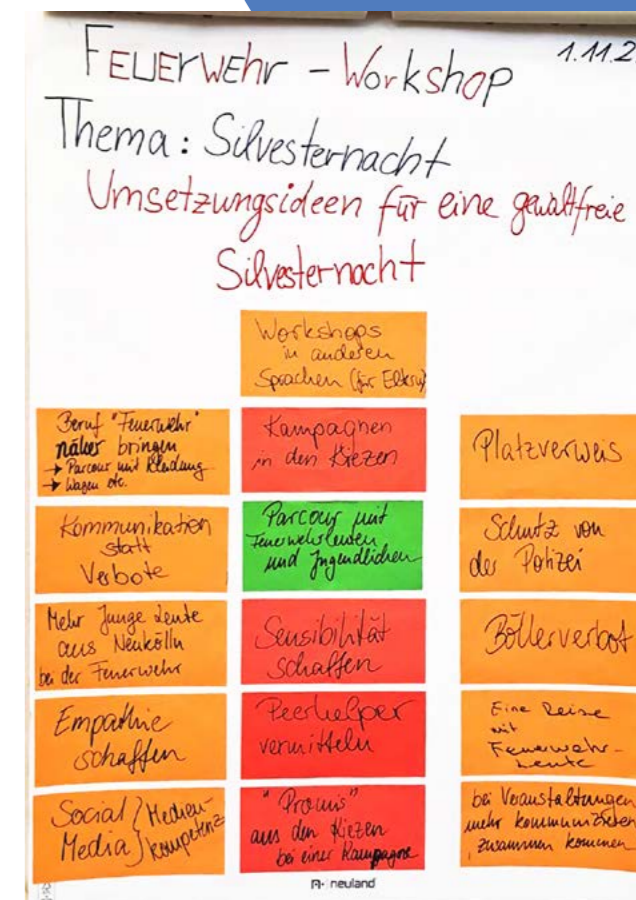 FEUErWEhr - Workshop
1.11.2
Thema: Silvesternacht
Umsetzungsideen für eine gewaltfreie
Silvesternacht
Workshops
in anderen
Sprachen (für Eltern)
Beruf "Feuerwehr"
näher bringen
→ Parcour mit Kleidung
→ Wagen etc.
Kommunikation
statt
Verbote
Mehr Junge Leute
aus Neukölln
bei der Feuerwehr
Empathie
schaffen
Social } Medien-
Media } kompetenz
Kampagnen
in den Kiezen
Parcour mit
Feuerwehrleuten
und Jugendlichen
Sensibilität
schaffen
Peerhelper
vermitteln
"Promis"
aus den Kiezen
bei einer Kampagne
Platzverweis
Schutz von
der Polizei
Böllerverbot
Eine Reise
mit
Feuerwehr-
Leute
bei Veranstaltungen
mehr kommunizieren
, zusammen kommen
neuland